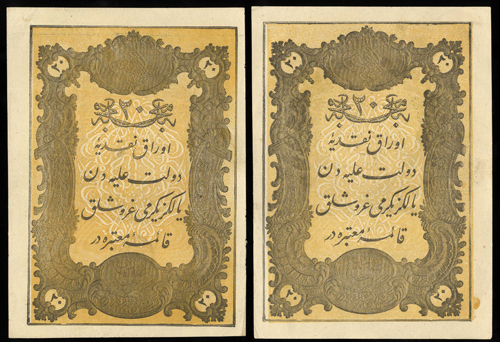 ٢٠ ٢٠
٢٠
اوراق نقديهٔ
دولت عليه دن
يالكز يكرمى غروشلق
قائمهٔ معتبره در
٢٠ ٢٠
٢٠ ٢٠
٢٠
اوراق نقديهٔ
دولت عليه دن
يالكز يكرمى غروشلق
قائمهٔ معتبره در
٢٠ ٢٠